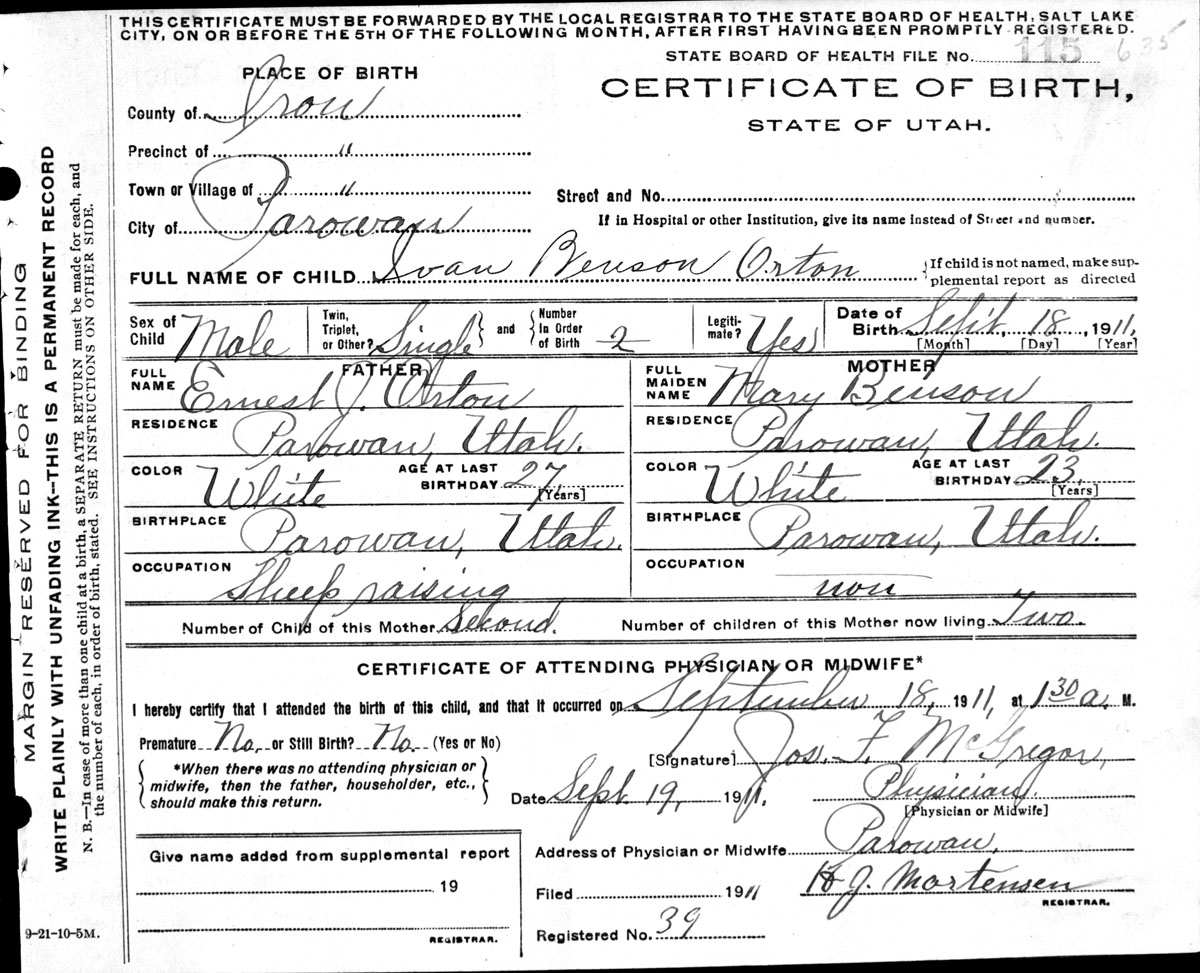 THIS CERTIFICATE MUST BE FORWARDED BY THE LOCAL REGISTRAR TO THE STATE BOARD OF HEALTH, SALT LAKE
CITY, ON OR BEFORE THE 5TH OF THE FOLLOWING MONTH, AFTER FIRST HAVING BEEN PROMPTLY REGISTERED.
STATE BOARD OF HEALTH FILE No. 115 635
PLACE OF BIRTH
CERTIFICATE OF BIRTH,
STATE OF UTAH.
County of Iron
Precinct of "
Town or Village of "
Street and No.
City of Parowan
If in Hospital or other Institution, give its name instead of Street and number.
FULL NAME OF CHILD Ivan Benson Orton {If child is not named, make sup-
plemental report as directed
Sex of Child Male Twin, Triplet, or Other? Single } and { Number In Order of Birth 2 Legiti- mate? Yes Date of Birth Sept. 18, 1911,
[Month] [Day] [Year]
FATHER MOTHER
FULL NAME Ernest J. Orton FULL MAIDEN NAME Mary Benson
RESIDENCE Parowan, Utah. RESIDENCE Parowan, Utah.
COLOR White AGE AT LAST BIRTHDAY 27, [Years] COLOR White AGE AT LAST BIRTHDAY 23, [Years]
BIRTHPLACE Parowan, Utah. BIRTHPLACE Parowan, Utah.
OCCUPATION Sheep raising OCCUPATION non
Number of Child of this Mother Second. Number of children of this Mother now living. Two.
CERTIFICATE OF ATTENDING PHYSICIAN OR MIDWIFE*
I hereby certify that I attended the birth of this child, and that it occurred on September 18, 1911, at 1 30 a. M.
Premature No. or Still Birth? No. (Yes or No)
[Signature] Jos. F. McGregor,
*When there was no attending physician or
midwife, then the father, householder, etc.,
should make this return.
Date Sept. 19, 1911. Physician.
[Physician or Midwife]
Address of Physician or Midwife Parowan.
Give name added from supplemental report
19
REGISTRAR.
Filed 1911 H J. Mortensen
REGISTRAR.
Registered No. 39
9-21-10-5M.
MARGIN RESERVED FOR BINDING
WRITE PLAINLY WITH UNFADING INK—THIS IS A PERMANENT RECORD
N. B.—In case of more than one child at a birth, a SEPARATE RETURN must be made for each, and
the number of each, in order of birth, stated. SEE INSTRUCTIONS ON OTHER SIDE.